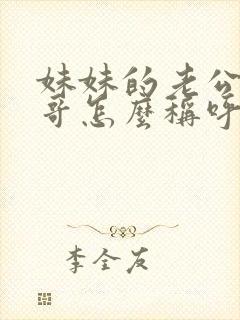 妹妹的老公
哥怎麼稱呼
李全友